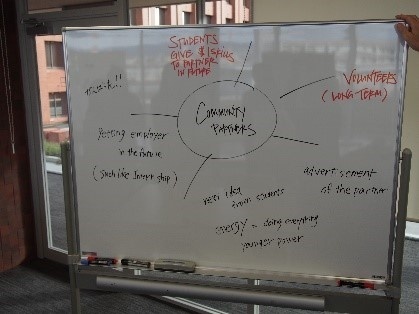 STUDENTS
GIVE $ / SKILLS
TO PARTNER
IN FUTURE
VOLUNTEERS
(LONG TERM)
COMMUNITY
PARTNERS
getting employer
in the future
(Such like Internship)
advertisement
of the partner
new idea
from students
energy = doing everything
younger power